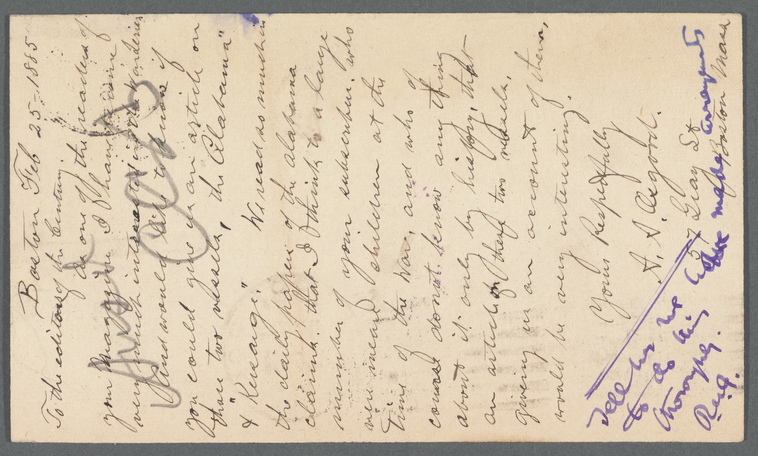 Boston Feb 25-1885
To the editors of the Century.
As one of the readers of
your Magazine I have been
very much interested in War Stories
and would like to know if
you could give us an article on
those two vessels, the "Alabama"
& "Kersage". We read so much in
the daily papers of the Alabama
claims that I think to a large
number of your subscribers who
were mear children at the
time of the War, and who of
course do not know any thing
about it only by history, that
an article on these two vessels,
giving us an account of them,
would be very interesting.
Yours Respectfully
A. S. Osgood.
37 Gray St
Boston Mass
Tell him we have made arrangements
to do this
thoroughly.